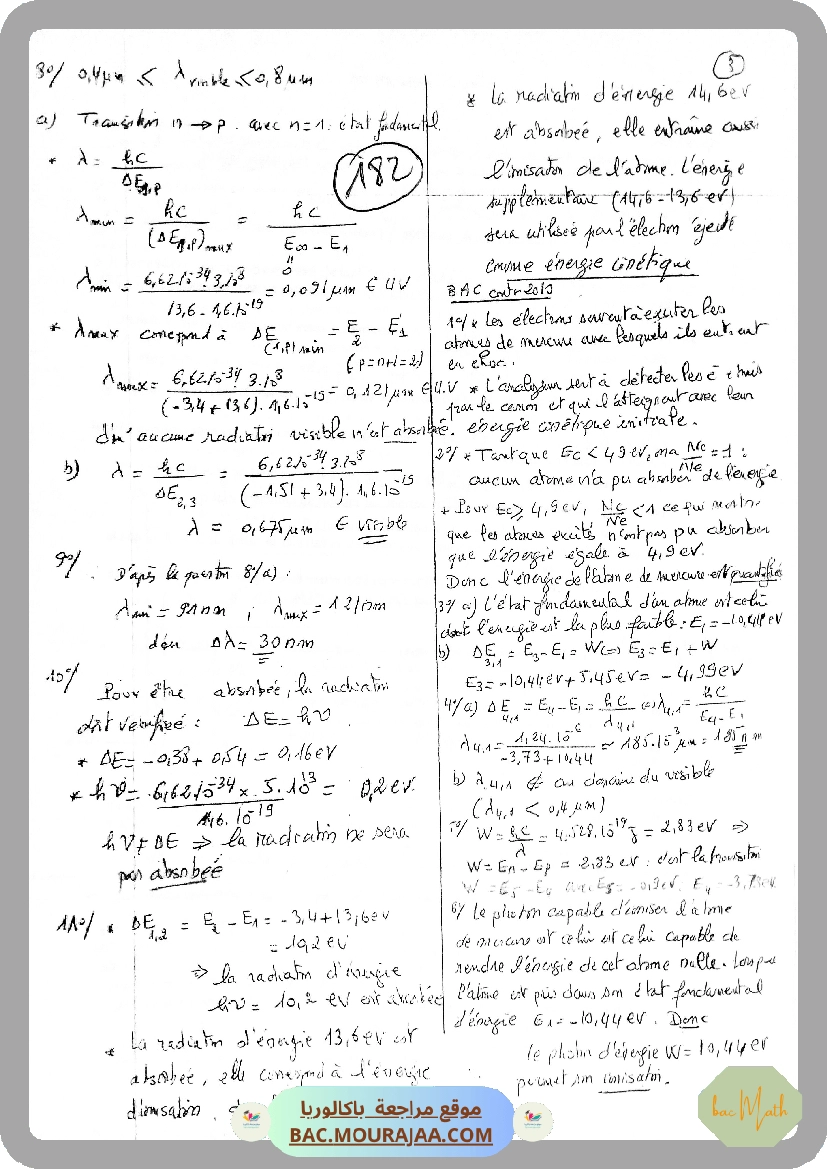 3
8°/ 0,4 μm ≤ λ visible ≤ 0,8 μm
a) Transition n → p. avec n=1: état fondamental.
182
* λ = hc / ΔE1,p
λmin = hc / (ΔE1,p)max = hc / E∞ - E1
0
λmin = 6,62.10^-34 . 3.10^8 / 13,6 . 1,6.10^-19 = 0,091 μm ∈ U.V
* λmax correspond à ΔE(1,p) min = E2 - E1
(p=n+1=2)
λmax = 6,62.10^-34 . 3.10^8 / (-3,4 + 13,6) . 1,6.10^-19 = 0,121 μm ∈ U.V
d'où aucune radiation visible n'est absorbée.
b) λ = hc / ΔE2,3 = 6,62.10^-34 . 3.10^8 / (-1,51 + 3,4) . 1,6.10^-19
λ = 0,675 μm ∈ visible
9°/ . D'après la question 8°/a) :
λmi = 91 nm ; λmax = 121 nm
d'où Δλ = 30 nm
10°/ Pour être absorbée, la radiation
doit verifiée : ΔE = hν .
* ΔE = -0,38 + 0,54 = 0,16 eV
* hν = 6,62.10^-34 × 5.10^13 / 1,6.10^-19 = 0,2 eV.
hν ≠ ΔE ⇒ la radiation ne sera
pas absorbée
11°/ * ΔE1,2 = E2 - E1 = -3,4 + 13,6 eV
= 10,2 eV
⇒ la radiation d'énergie
hν = 10,2 eV est absorbée
* La radiation d'énergie 13,6 eV est
absorbée, elle correspond à l'énergie
d'ionisation.
* La radiation d'énergie 14,6 eV
est absorbée, elle entraîne aussi
l'ionisation de l'atome. L'énergie
supplémentaire (14,6 - 13,6 eV)
sera utilisée par l'électron éjecté
comme énergie cinétique
BAC contr 2013
1°/ * Les électrons servent à exciter les
atomes de mercure avec lesquels ils entrent
en choc.
* L'analyseur sert à détecter les é émis
par le canon et qui l'atteignent avec leur
énergie cinétique initiale.
2°/ * Tant que Ec < 4,9 eV, on a Nc/Ne = 1 :
aucun atome n'a pu absorber de l'énergie
+ Pour Ec ≥ 4,9 eV, Nc/Ne < 1 ce qui montre
que les atomes excités n'ont pas pu absorber
que l'énergie égale à 4,9 eV.
Donc l'énergie de l'atome de mercure est quantifiée
3°/ a) L'état fondamental d'un atome est celui
dont l'énergie est la plus faible : E1 = -10,44 eV
b) ΔE3,1 = E3 - E1 = W ⇔ E3 = E1 + W
E3 = -10,44 eV + 5,45 eV = -4,99 eV
4°/ a) ΔE4,1 = E4 - E1 = hc / λ4,1 ⇔ λ4,1 = hc / E4 - E1
λ4,1 = 1,24.10^-6 / -3,73 + 10,44 ≈ 185.10^-3 μm = 185 nm
b) λ4,1 ∉ au domaine du visible
(λ4,1 < 0,4 μm)
5°/ W = hc / λ = 4,528.10^-19 J = 2,83 eV ⇒
W = En - Ep = 2,83 eV : c'est la transition
W = E5 - E4 car E5 = -0,9 eV. E4 = -3,73 eV
6°/ Le photon capable d'ioniser l'atome
de mercure est celui est celui capable de
rendre l'énergie de cet atome nulle. Lorsque
l'atome est pris dans son état fondamental
d'énergie E1 = -10,44 eV. Donc
le photon d'énergie W = 10,44 eV
permet son ionisation.
موقع مراجعة باكالوريا
BAC.MOURAJAA.COM
bac Math